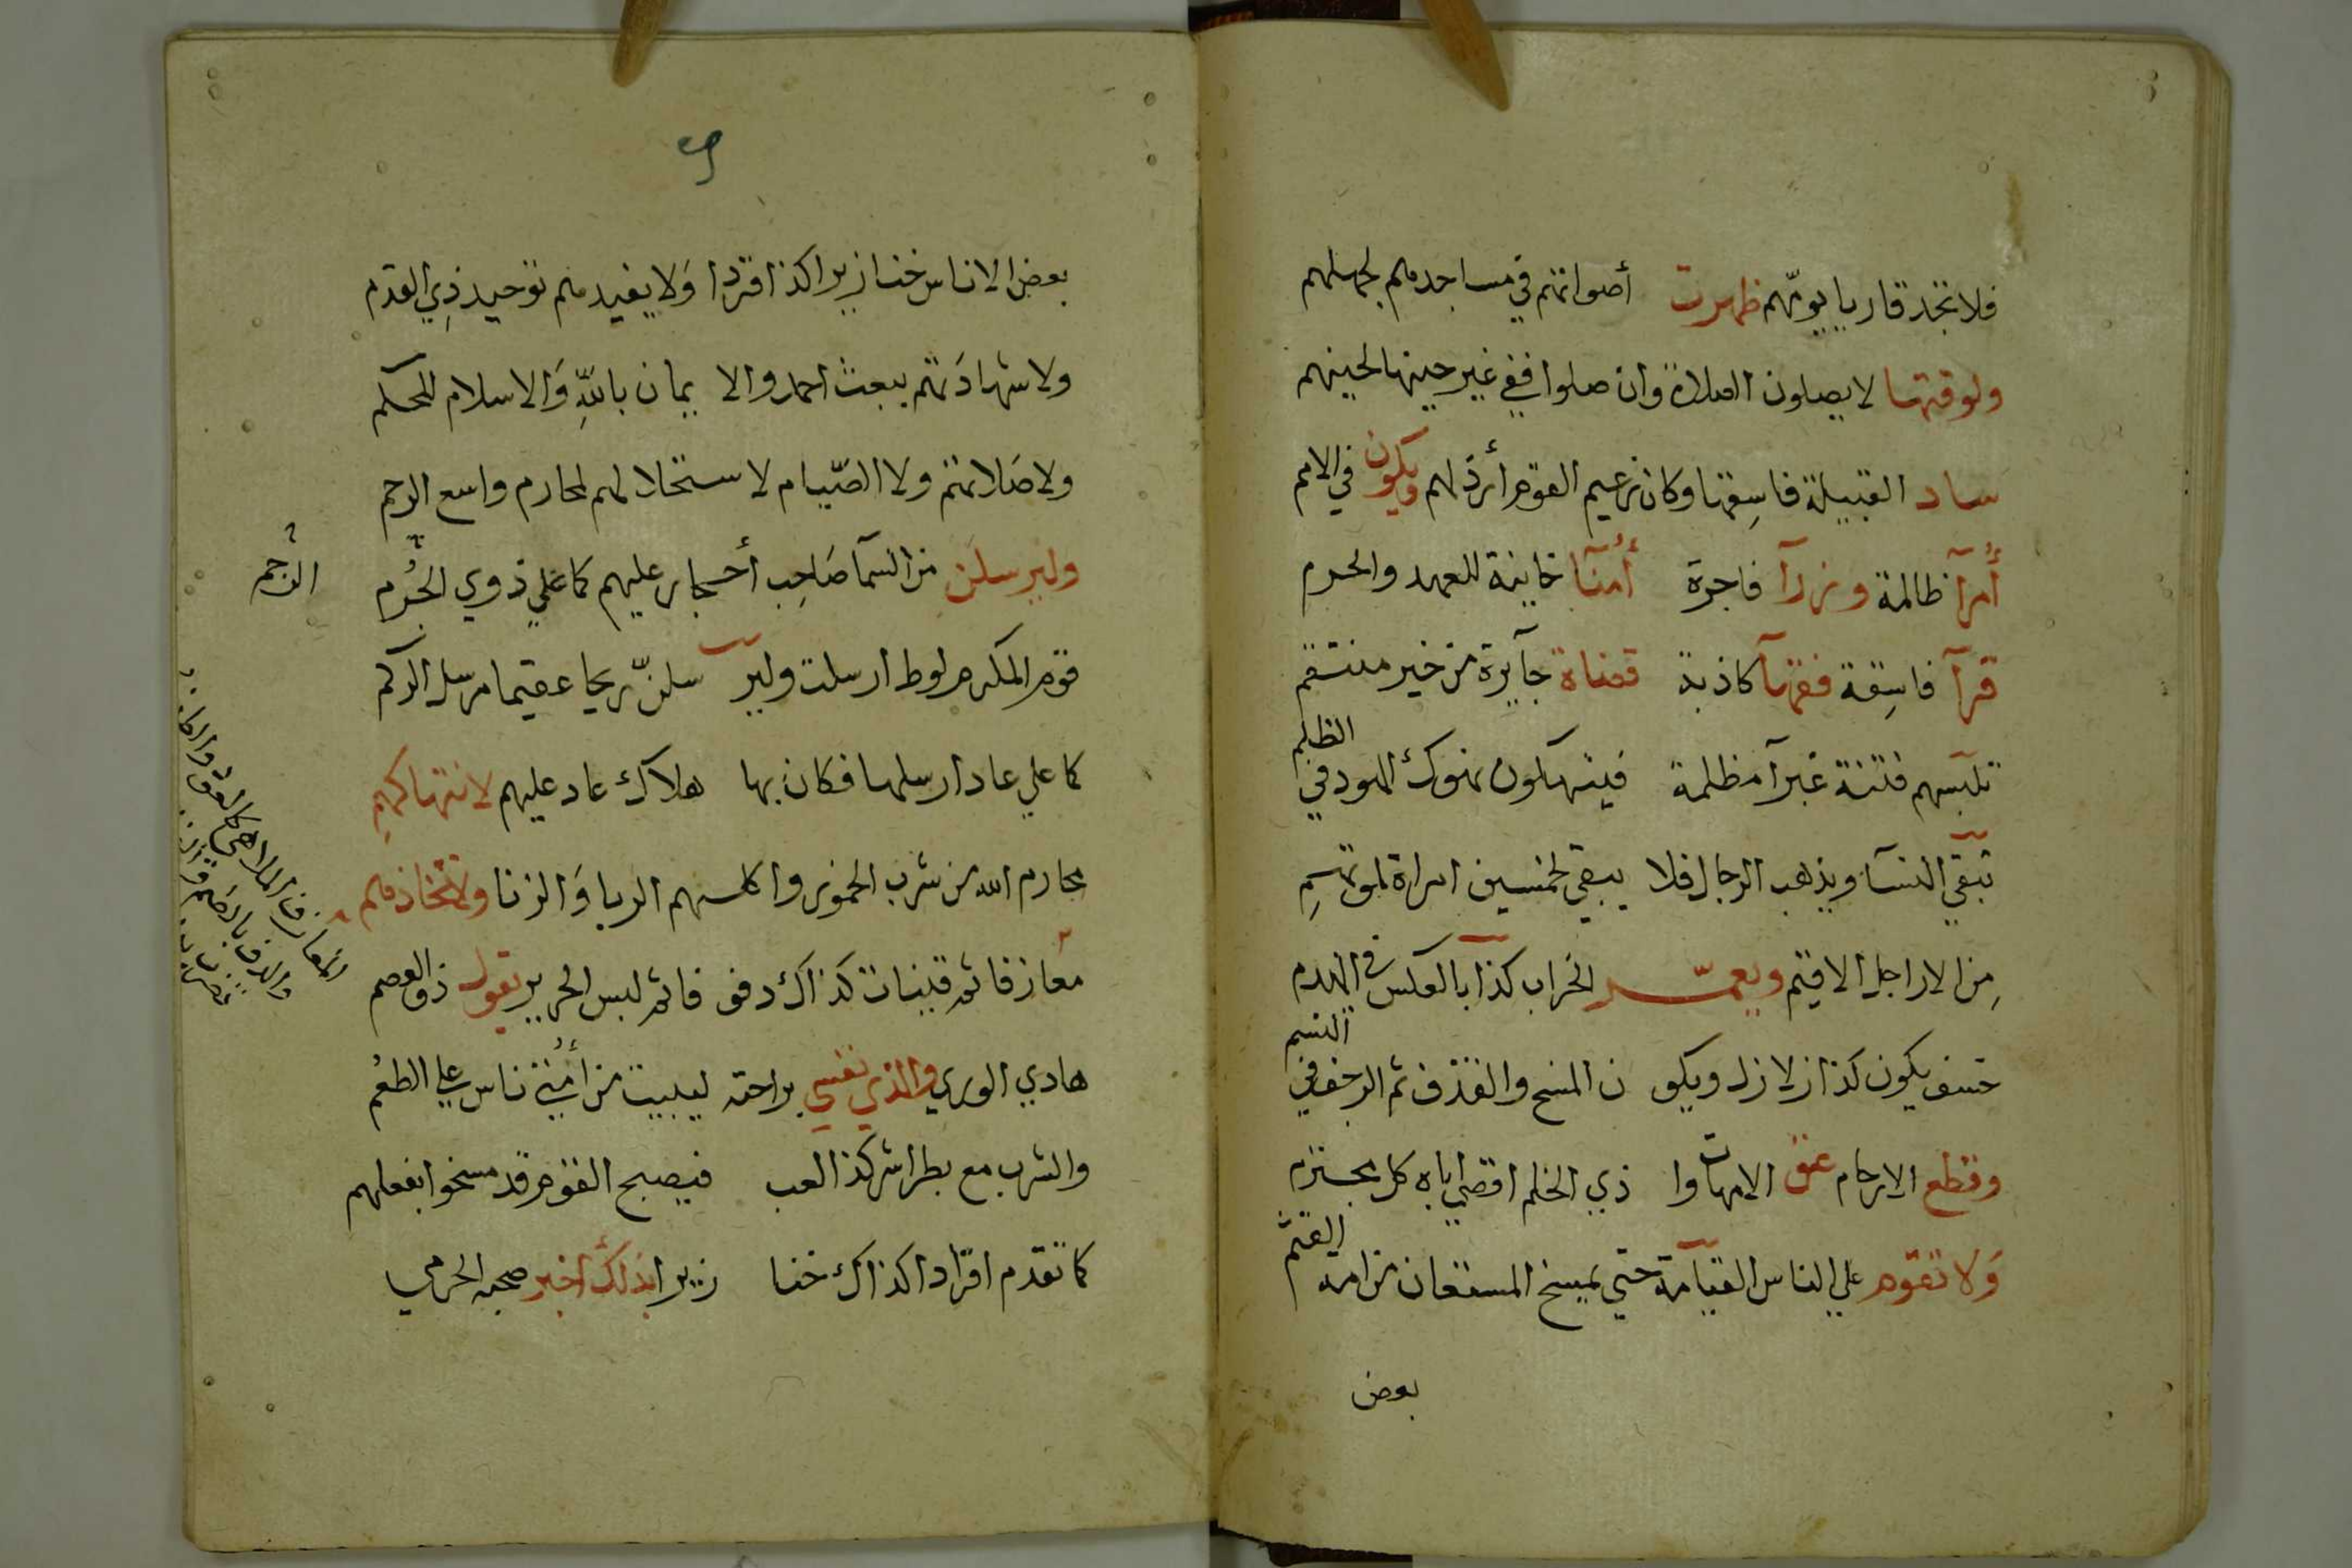 فلا تجد قاريا يومهم ظهرت أصواتهم في مساجدهم لجهلهم
ولوقتها لا يصلون الصلاة وان صلوا ففي غير حينها لحينهم
ساد القبيلة فاسقها وكان زعيم القوم أرذلهم ويكون في الامم
أمرآ ظالمة وزرآ فاجرة أمنآ خاينة للعهد والحرم
قرآ فاسقة فقهآ كاذبة قضاة جآيرة من خير منتقم
تلبسهم فتنة غبرآ مظلمة فيتهوكون تهوك اليهود في الظلم
تبقي النسآ ويذهب الرجال فلا يبقي لخمسين امراة
من الاراجل الا قيم ويعمر الخراب كذا بالعكس في الهدم
خسف يكون كذا زلازل ويكو ن المسخ والقذف ثم الرجف في النسم
وقطع الارحام عق الامهات وا ذي الخلم اقصي اباه كل مجترم
ولا تقوم علي الناس القيامة حتي يمسخ المستعان من امة القثم
بعض
بعض الاناس خنازيرا كذا قردا ولا يفيدهم توحيد ذي القدم
ولا شهادتهم ببعث احمد والا يمان بالله والاسلام للحكم
ولا صلاتهم ولا الصيام لاستحلالهم لمحارم واسع الرحم
وليرسلن من السمآ صاحب أحجار عليهم كما علي ذوي الجرم
الرجم
قوم المكرم لوط ارسلت ولير سلن ريحا عقيما مرسل الركم
كما علي عاد ارسلها فكان بها هلاك عاد عليهم لانتهاكهم
محارم الله من شرب الخمور واكلهم الربا والزنا ولاتخاذهم
معازفا ثم قينات كذاك دفو فا ثم لبس الحرير يقول ذو العصم
هادي الوري والذي نفسي براحته ليبيت من أمتي ناس علي الطعم
والشرب مع بطر اشر كذا لعب فيصبح القوم قد مسخوا بفعلهم
كما تقدم اقرادا كذاك خنا زيرا بذلك اخبر صحبه الحرمي
المعازف الملاهي كالعود
والدف بالضم